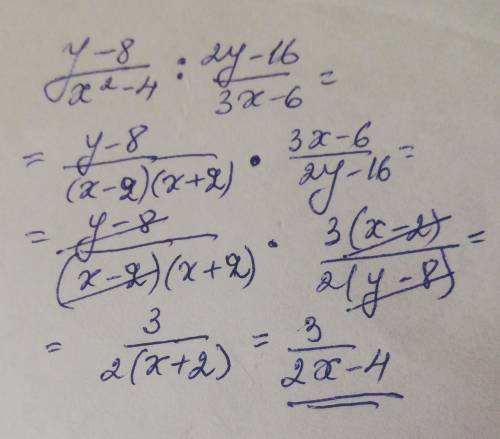 (y-8)/(x²-4) : (2y-16)/(3x-6) =
= (y-8)/((x-2)(x+2)) · (3x-6)/(2y-16) =
= (y-8)/((x-2)(x+2)) · (3(x-2))/(2(y-8)) =
= 3/(2(x+2)) = 3/(2x-4)